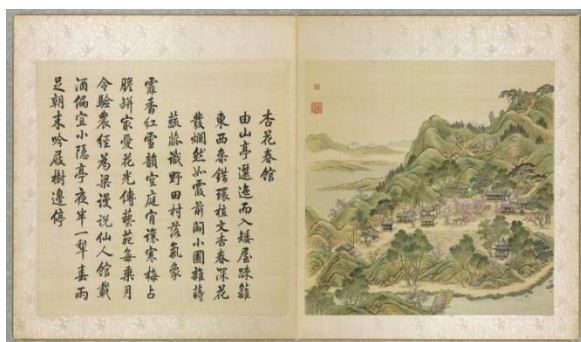 杏花春館
由山亭邐迤而入矮屋疎籬
東西叅錯環植文杏春深花
發爛然如霞前闢小圃雜蒔
蔬蓏識野田村落氣象
霏香紅雪韻空庭肯讓寒梅占
膽缾冣愛花光傳藝苑每乘月
令驗農經為梁謾說仙人館載
酒偏宜小隱亭夜半一犂春雨
足朝來吟屐樹邊停